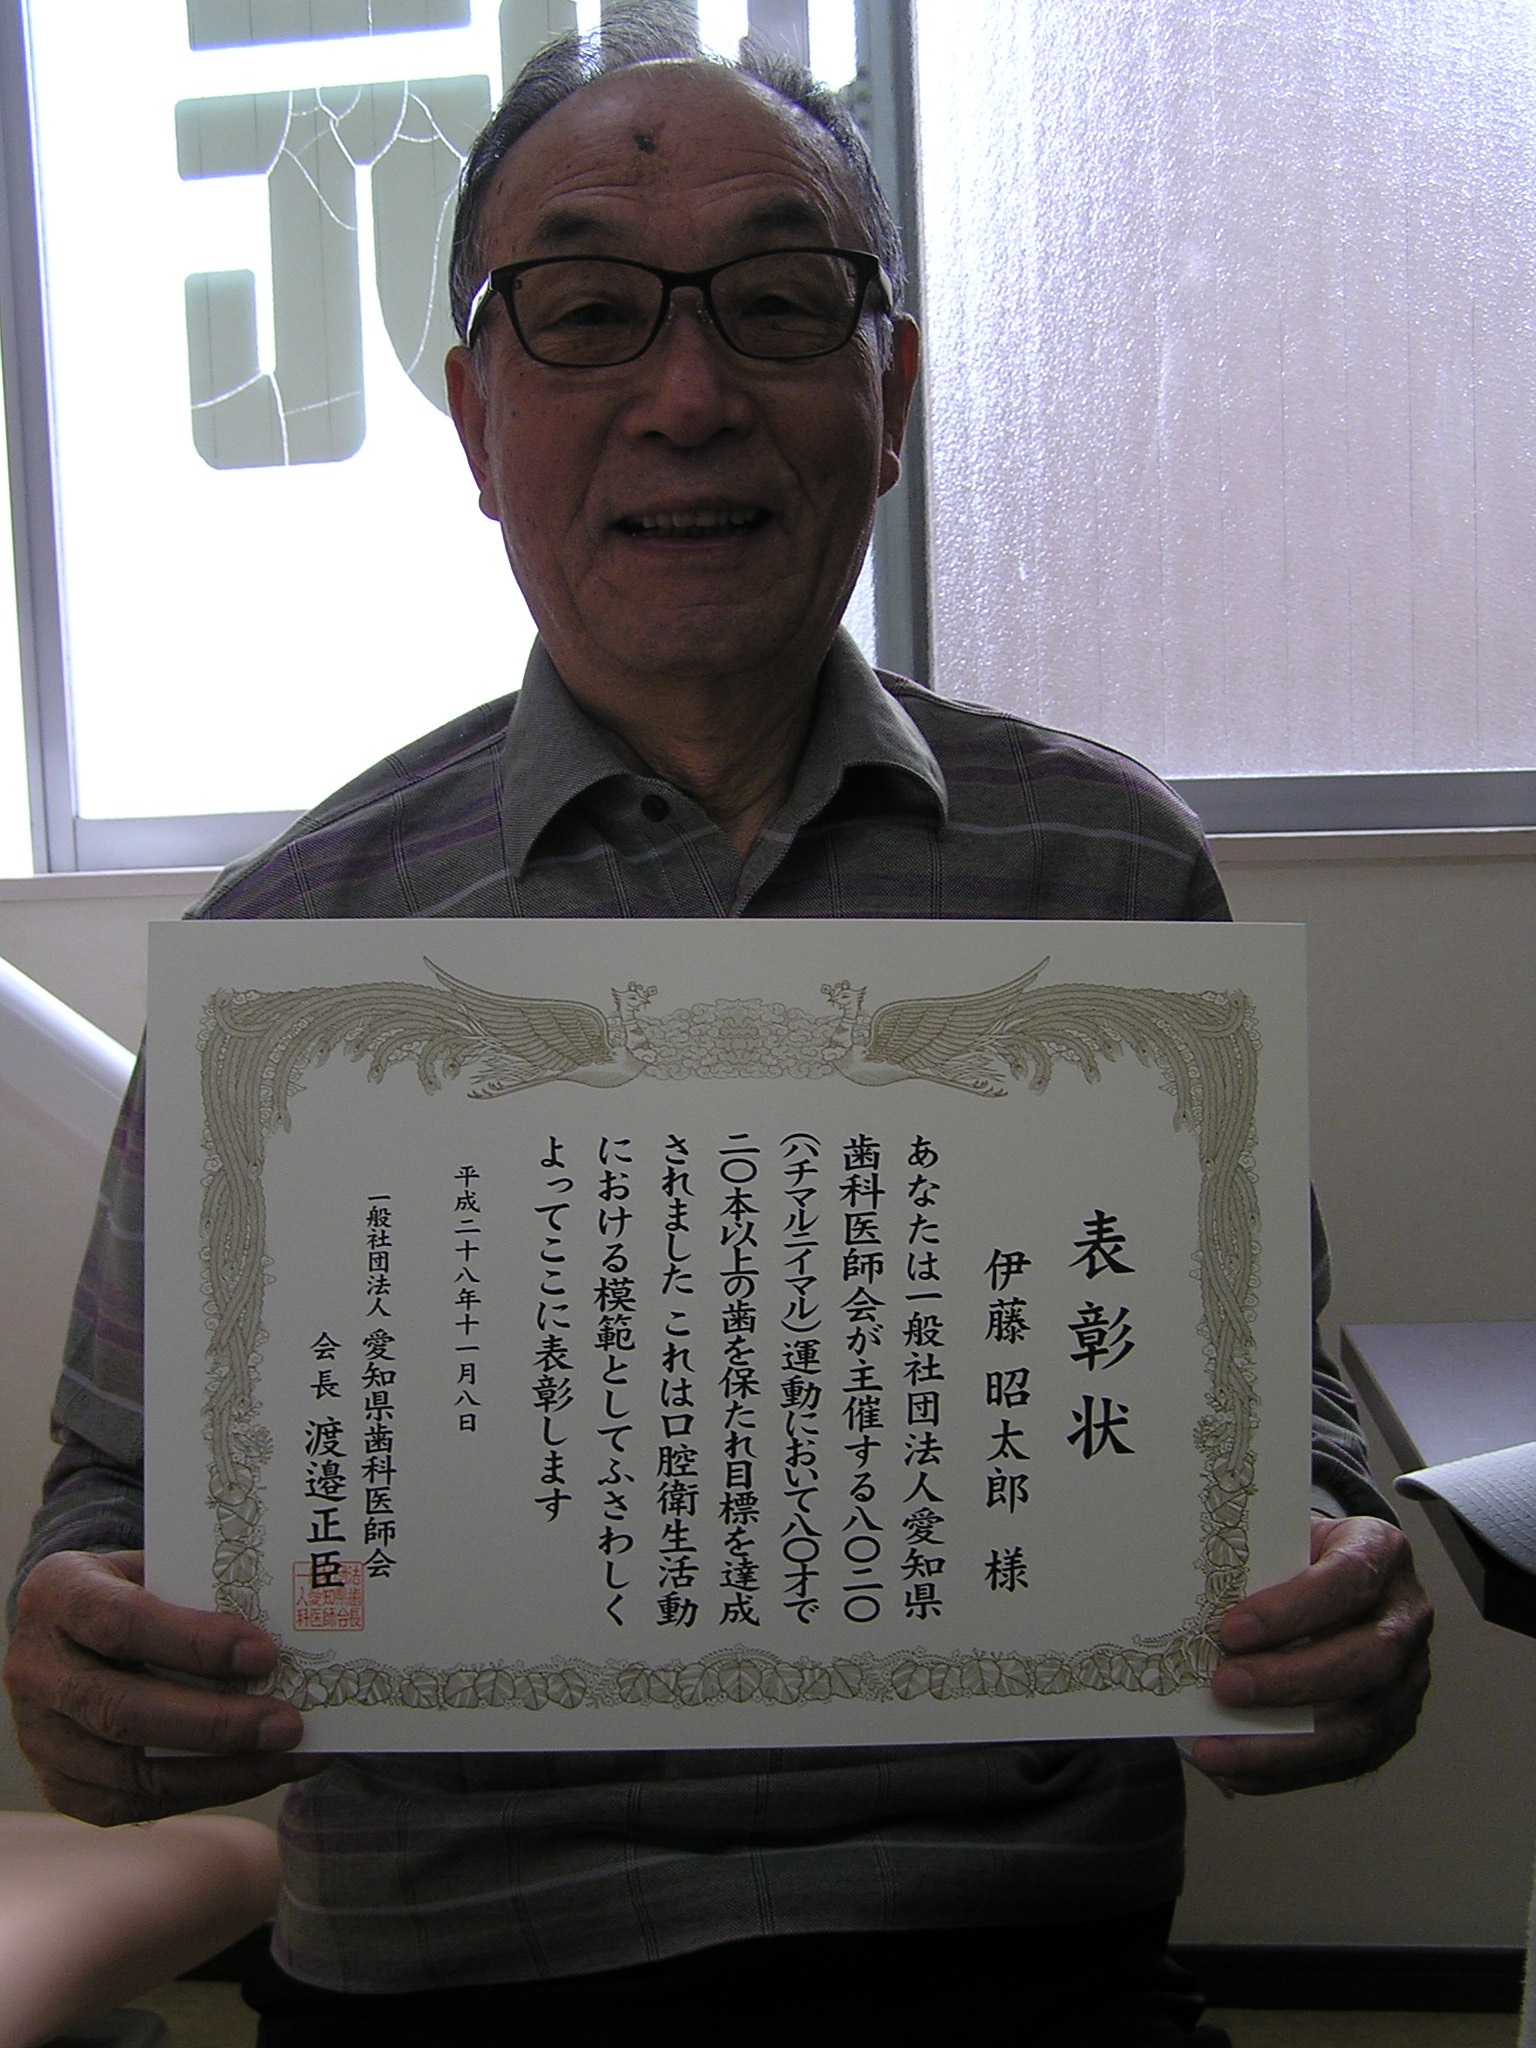 表彰状
伊藤昭太郎 様
あなたは一般社団法人愛知県
歯科医師会が主催する八〇二〇
(ハチマルニイマル)運動において八〇才で
二〇本以上の歯を保たれ目標を達成
されました これは口腔衛生活動
における模範としてふさわしく
よってここに表彰します
平成二十八年十一月八日
一般社団法人 愛知県歯科医師会
会長 渡邉正臣